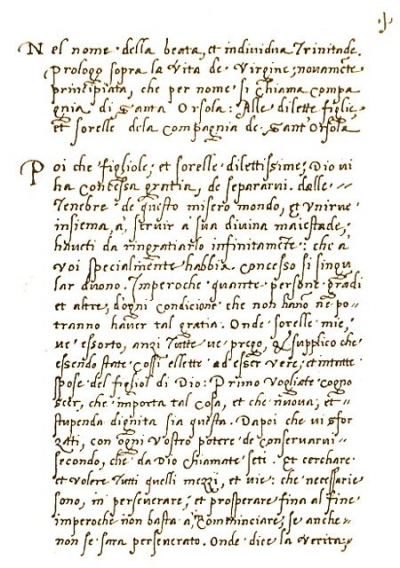 ·1·
Nel nome della beata, et individua Trinitade.
Prologo sopra la Vita de Virgine, novamēte
principiata, che per nome si chiama Compa
gnia di Santa Orsola: Alle dilette figlie,
et sorelle dela Compagnia de Sant'Orsola
Poi che figliole, et sorelle dilettissime, Dio vi
ha concessa gratia, de separarvi dalle
Tenebre de questo misero mondo, & unirve
insiema, a, servir a sua divina maiestade,
haveti da ringratiarlo infinitamēte: che a
voi specialmente habbia concesso si singu
lar duono. Imperoche quante persone grādi
et altre, d'ogni condicione che non hano ne po-
tranno haver tal gratia. Onde sorelle mie,
ve essorto, anzi tutte ve prego, & supplico che
essendo state cossi ellette ad esser vere, et intatte
spose del figliol di Dio: Primo vogliate cogno
scer, che importa tal cosa, et che nuova, et
stupenda dignita sia questa. Dapoi che vi sfor
zati, con ogni vostro potere de conservarvi
secondo, che da Dio chiamate seti. Et cerchare
et volere tutti quelli mezzi, et vie: che necessarie
sono, in perseverare, et prosperare fina al fine
imperoche non basta a, comminciare, se anche
non se sara perseverato. Onde dice la verita,